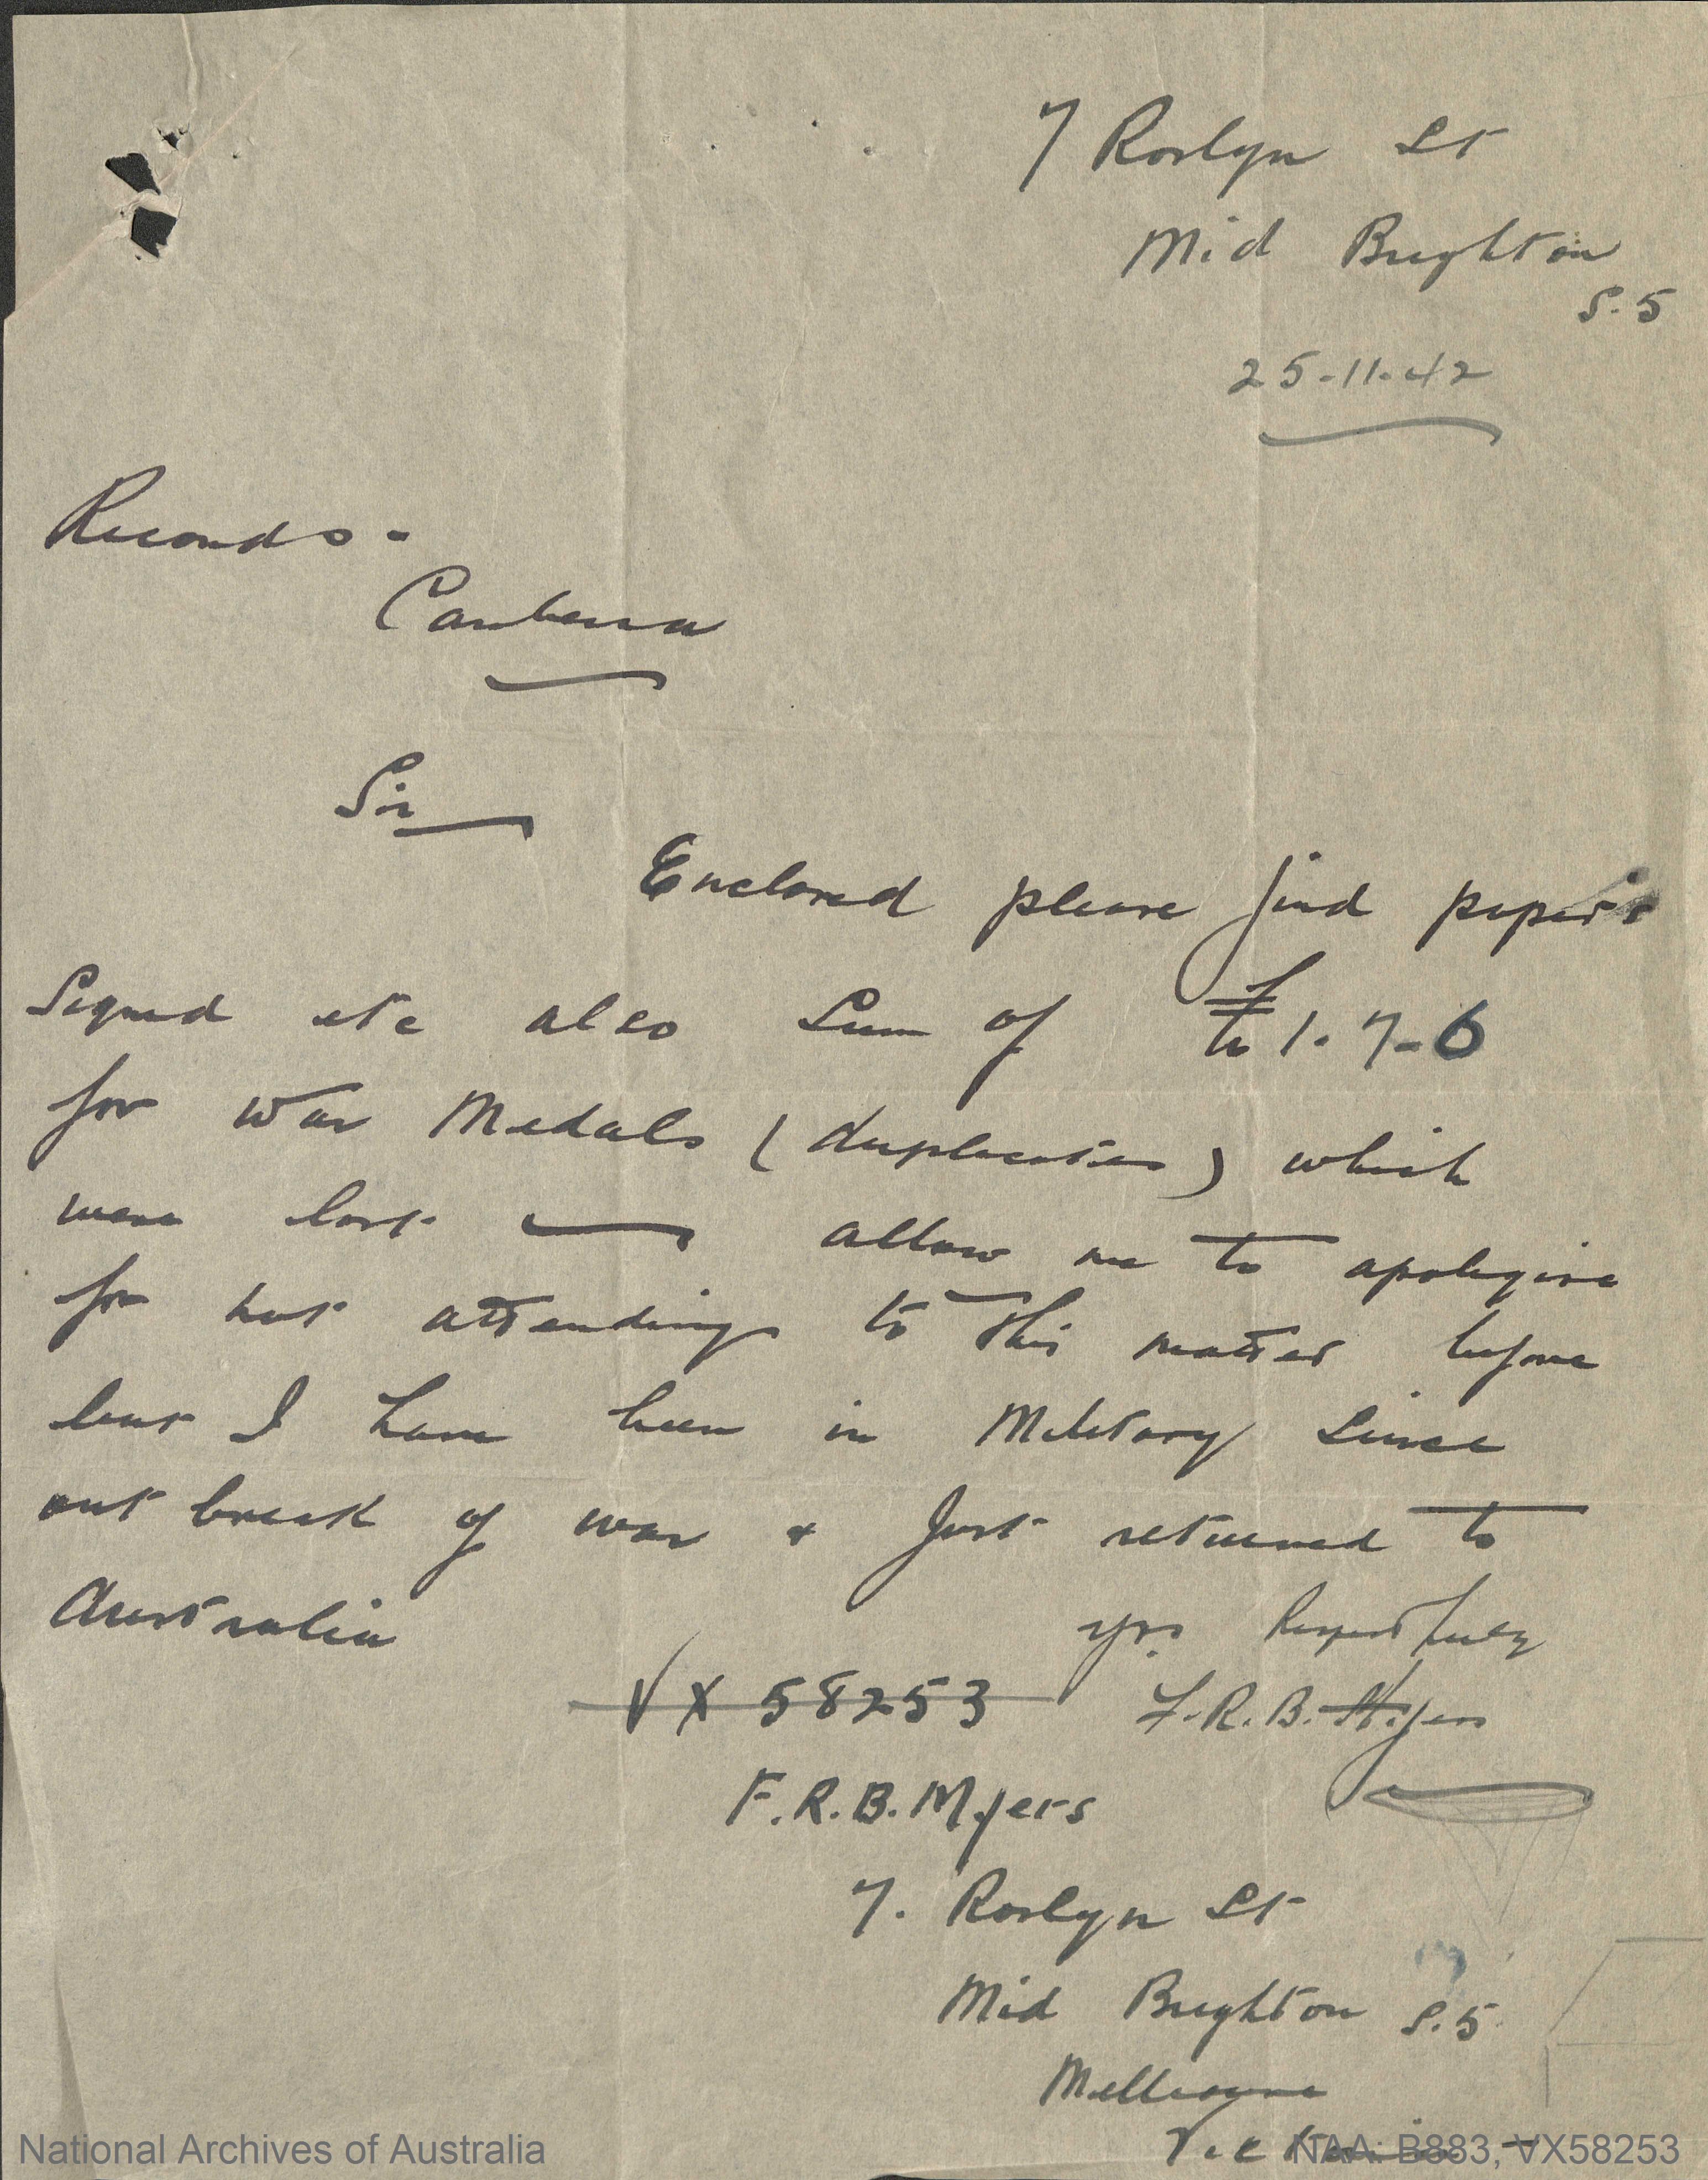 7 Roslyn St
Mid Brighton
S.5
25.11.42
Records -
Canberra
Sir
Enclosed please find papers
Signed etc also Sum of £1.7-6
for War Medals (duplicates) which
were lost — allow me to apologise
for not attending to this matter before
but I have been in Military Since
out break of war & Just returned to
Australia
yrs Respectfully
VX 58253 F.R.B. Myers
F.R.B. Myers
7. Roslyn St
Mid Brighton S.5
Melbourne
Victoria
National Archives of Australia NAA: B883, VX58253